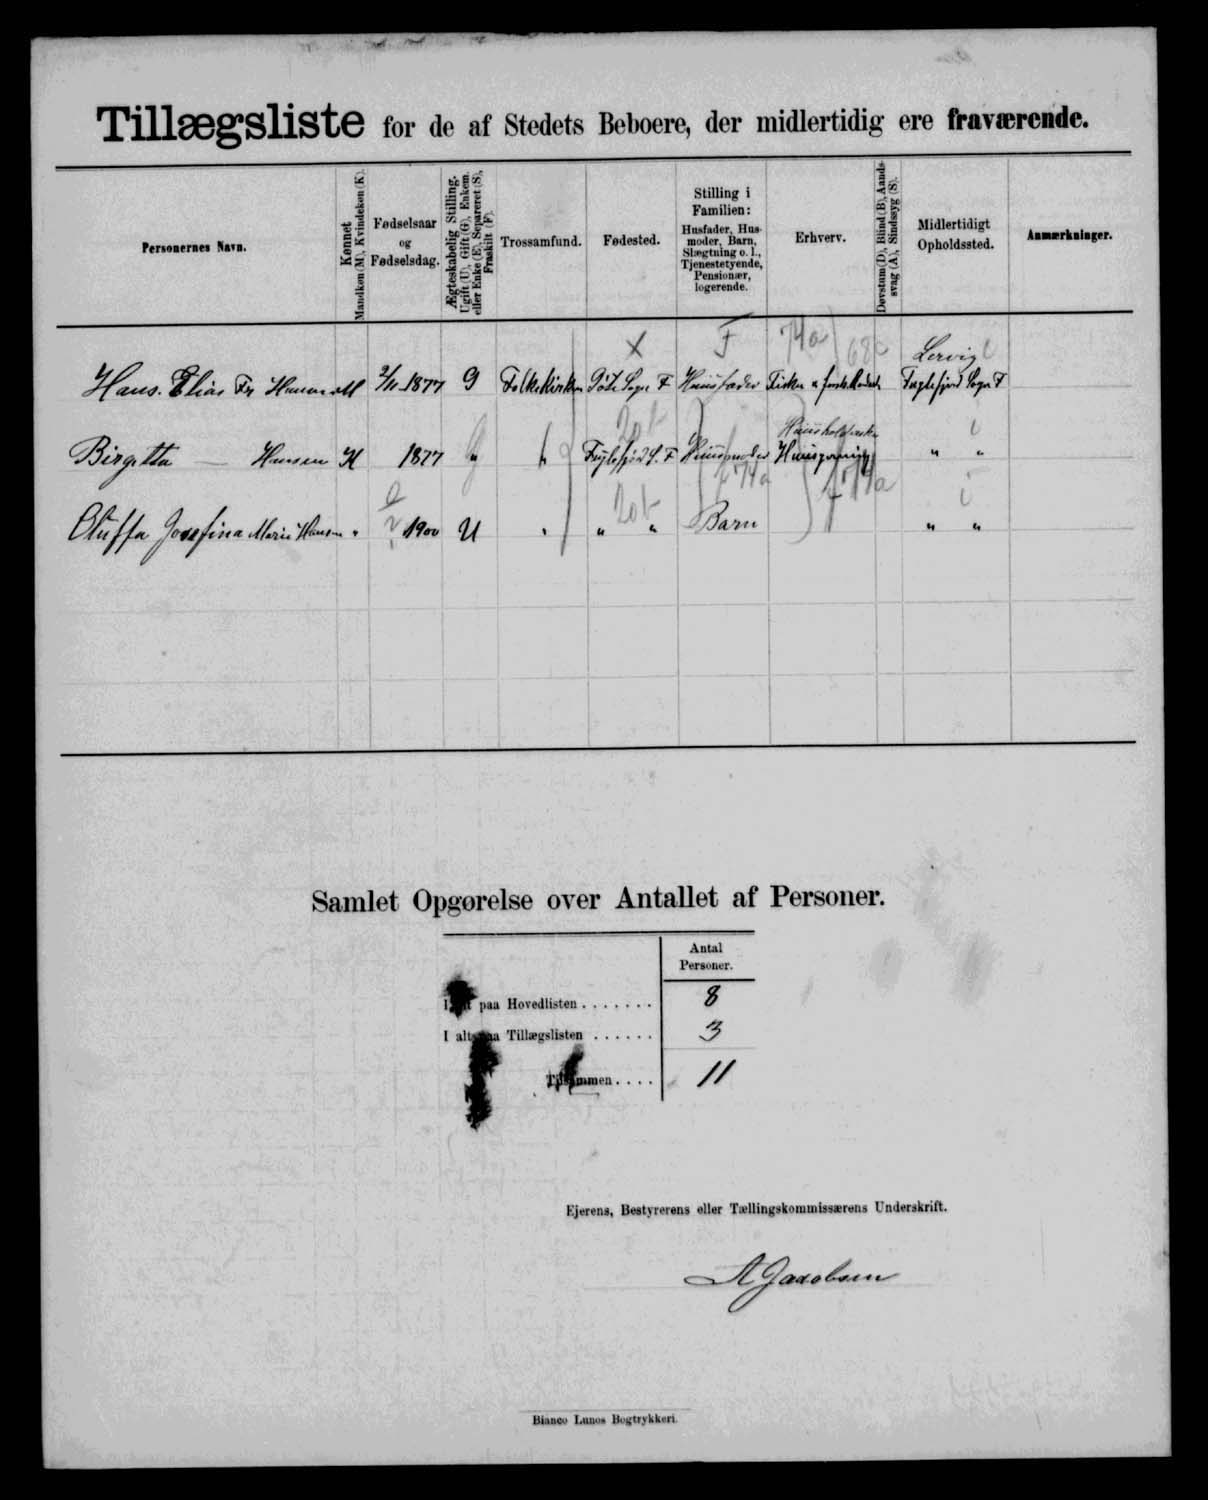 Tillægsliste for de af Stedets Beboere, der midlertidig ere fraværende.
Personernes Navn.
Kønnet
Mandkøn (M), Kvindekøn (K).
Fødselsaar
og
Fødselsdag.
Ægteskabelig Stilling.
Ugift (U), Gift (G), Enkem.
eller Enke (E), Separeret (S),
Fraskilt (F).
Trossamfund.
Fødested.
Stilling i
Familien:
Husfader, Hus-
moder, Barn,
Slægtning o. l.,
Tjenestetyende,
Pensionær,
logerende.
Erhverv.
Døvstum (D), Blind (B), Aands-
svag (A), Sindssyg (S).
Midlertidigt
Opholdssted.
Anmærkninger.
X F 74a 68c Lervig
Hans. Elias Fr Hansen M 2/11 1877 G Folkekirken Sogn F Huusfader Fisker Fuglefjord Sogn F
20b Huusholderske
Birgitta — Hansen K 1877 " " Fuglefjord S. F Huusmoder Husgerning " "
20b f 74a f 74a
Oluffa Josefina Marie Hansen " ? 1900 U " " " Barn " "
Samlet Opgørelse over Antallet af Personer.
Antal
Personer.
I alt paa Hovedlisten . . . . . . . 8
I alt paa Tillægslisten . . . . . . 3
Tilsammen . . . . 11
Ejerens, Bestyrerens eller Tællingskommissærens Underskrift.
A Jacobsen
Bianco Lunos Bogtrykkeri.